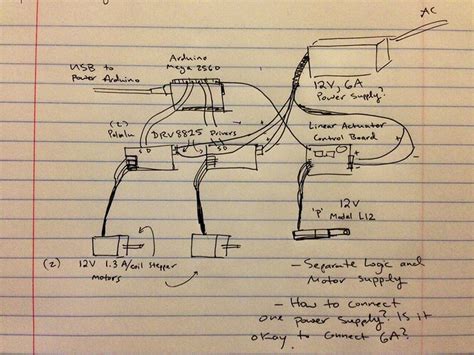 AC
Arduino
Mega 2560
USB to
Power Arduino
12V, 6A
Power Supply?
(2)
Pololu DRV8825 Drivers
Linear Actuator
Control Board
S D
S D
+
-
+
-
12V
'P' Model L12
(2) 12V 1.3 A/coil stepper
Motors
- Separate Logic and
Motor supply
- How to connect
one power supply? Is it
okay to connect 6A?